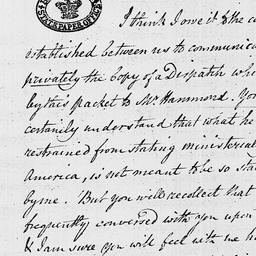 I think I owe it to the co
established between us to communica
privately the copy of a Dispatch whi
by this packet to Mr Hammond. You
certainly understand that what he
restrained from stating ministerial
America, is not meant to be so sta
by me. But you will recollect that
frequently conversed with you upon
& I am sure you will feel with me h